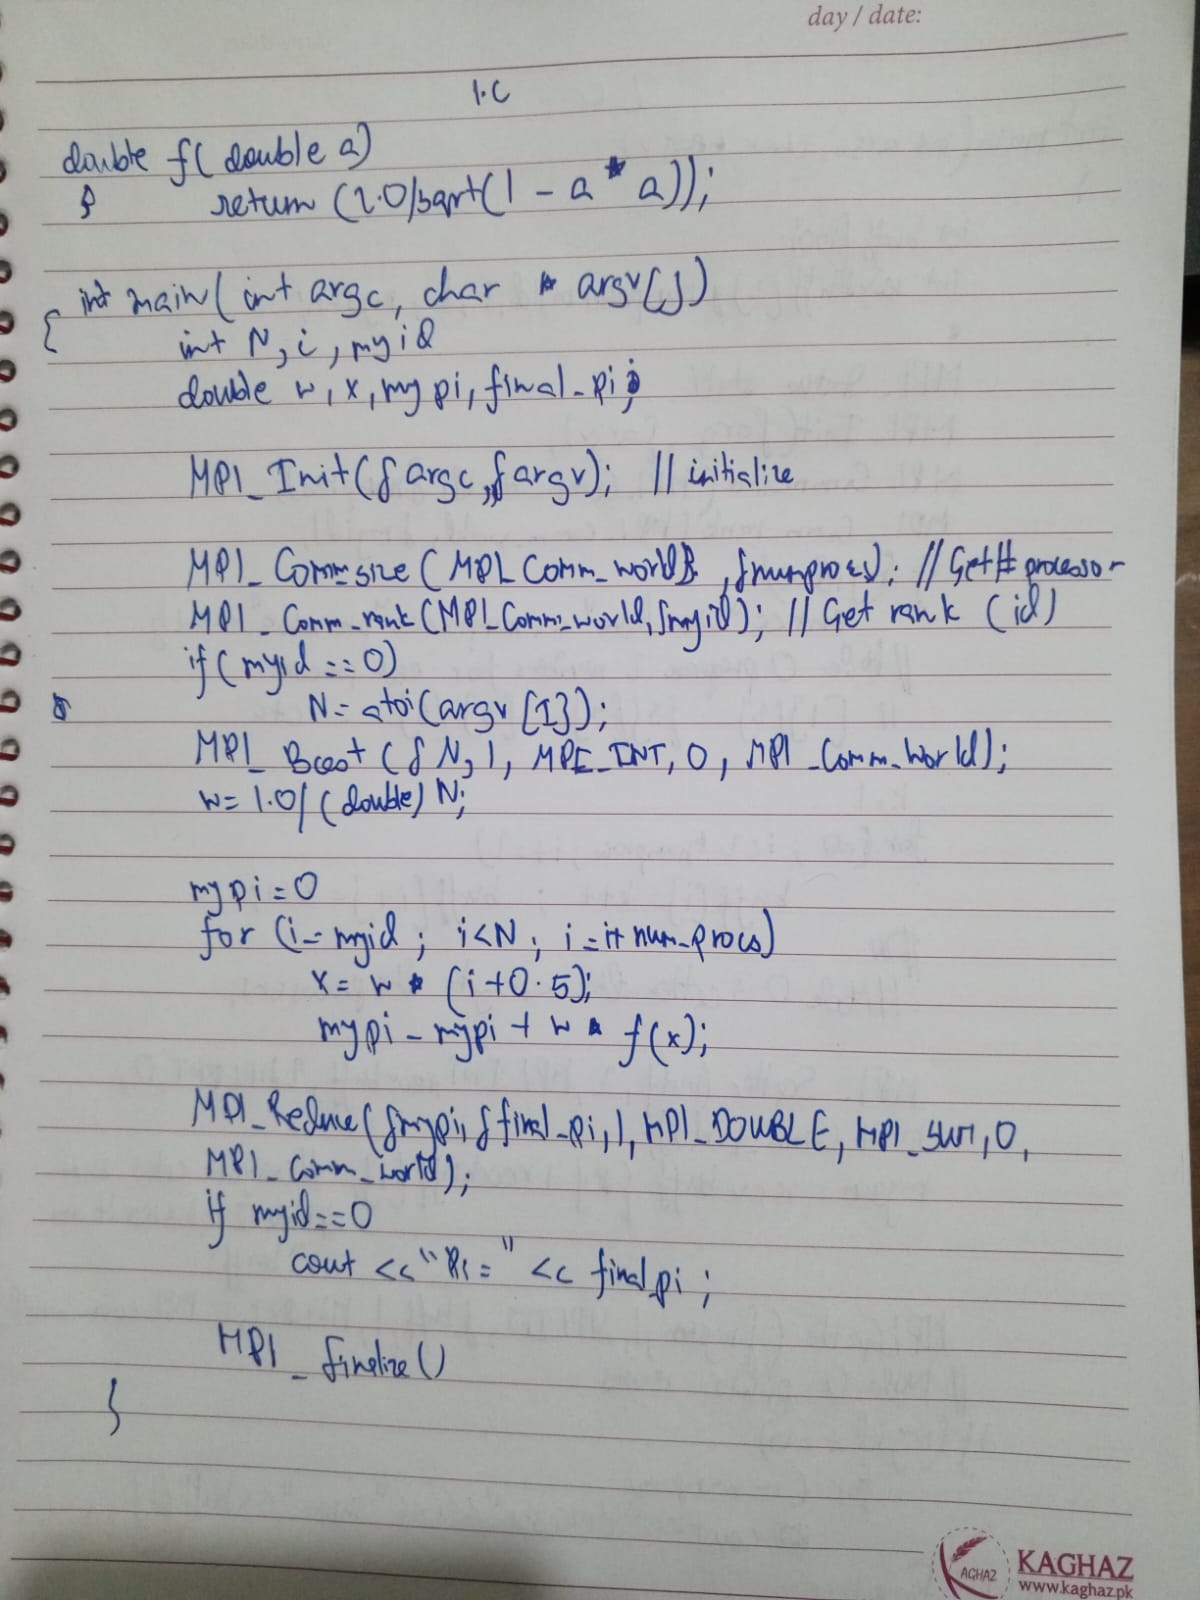 day / date:
1.C
double f( double a)
return (2.0/sqrt(1 - a * a));
int main( int argc, char * argv[])
{
int N, i, myid
double w, x, mypi, final_pi;
MPI_Init(& argc, & argv); // initialize
MPI_Comm_size (MPI_Comm_world, &numprocs); // Get # processor
MPI_Comm_rank (MPI_Comm_world, &myid); // Get rank (id)
if( myid == 0)
N= atoi(argv [1]);
MPI_Bcast (& N, 1, MPI_INT, 0, MPI_Comm_world);
w= 1.0/(double) N;
mypi=0
for (i= myid ; i<N ; i =i+ num_procs)
x= w * (i+0.5);
mypi = mypi + w * f(x);
MPI_Reduce(&mypi, & final_pi, 1, MPI_DOUBLE, MPI_SUM, 0,
MPI_Comm_world);
if myid==0
cout << "Pi = " << final_pi ;
MPI_finalize()
}
AGHAZ
KAGHAZ
www.kaghaz.pk